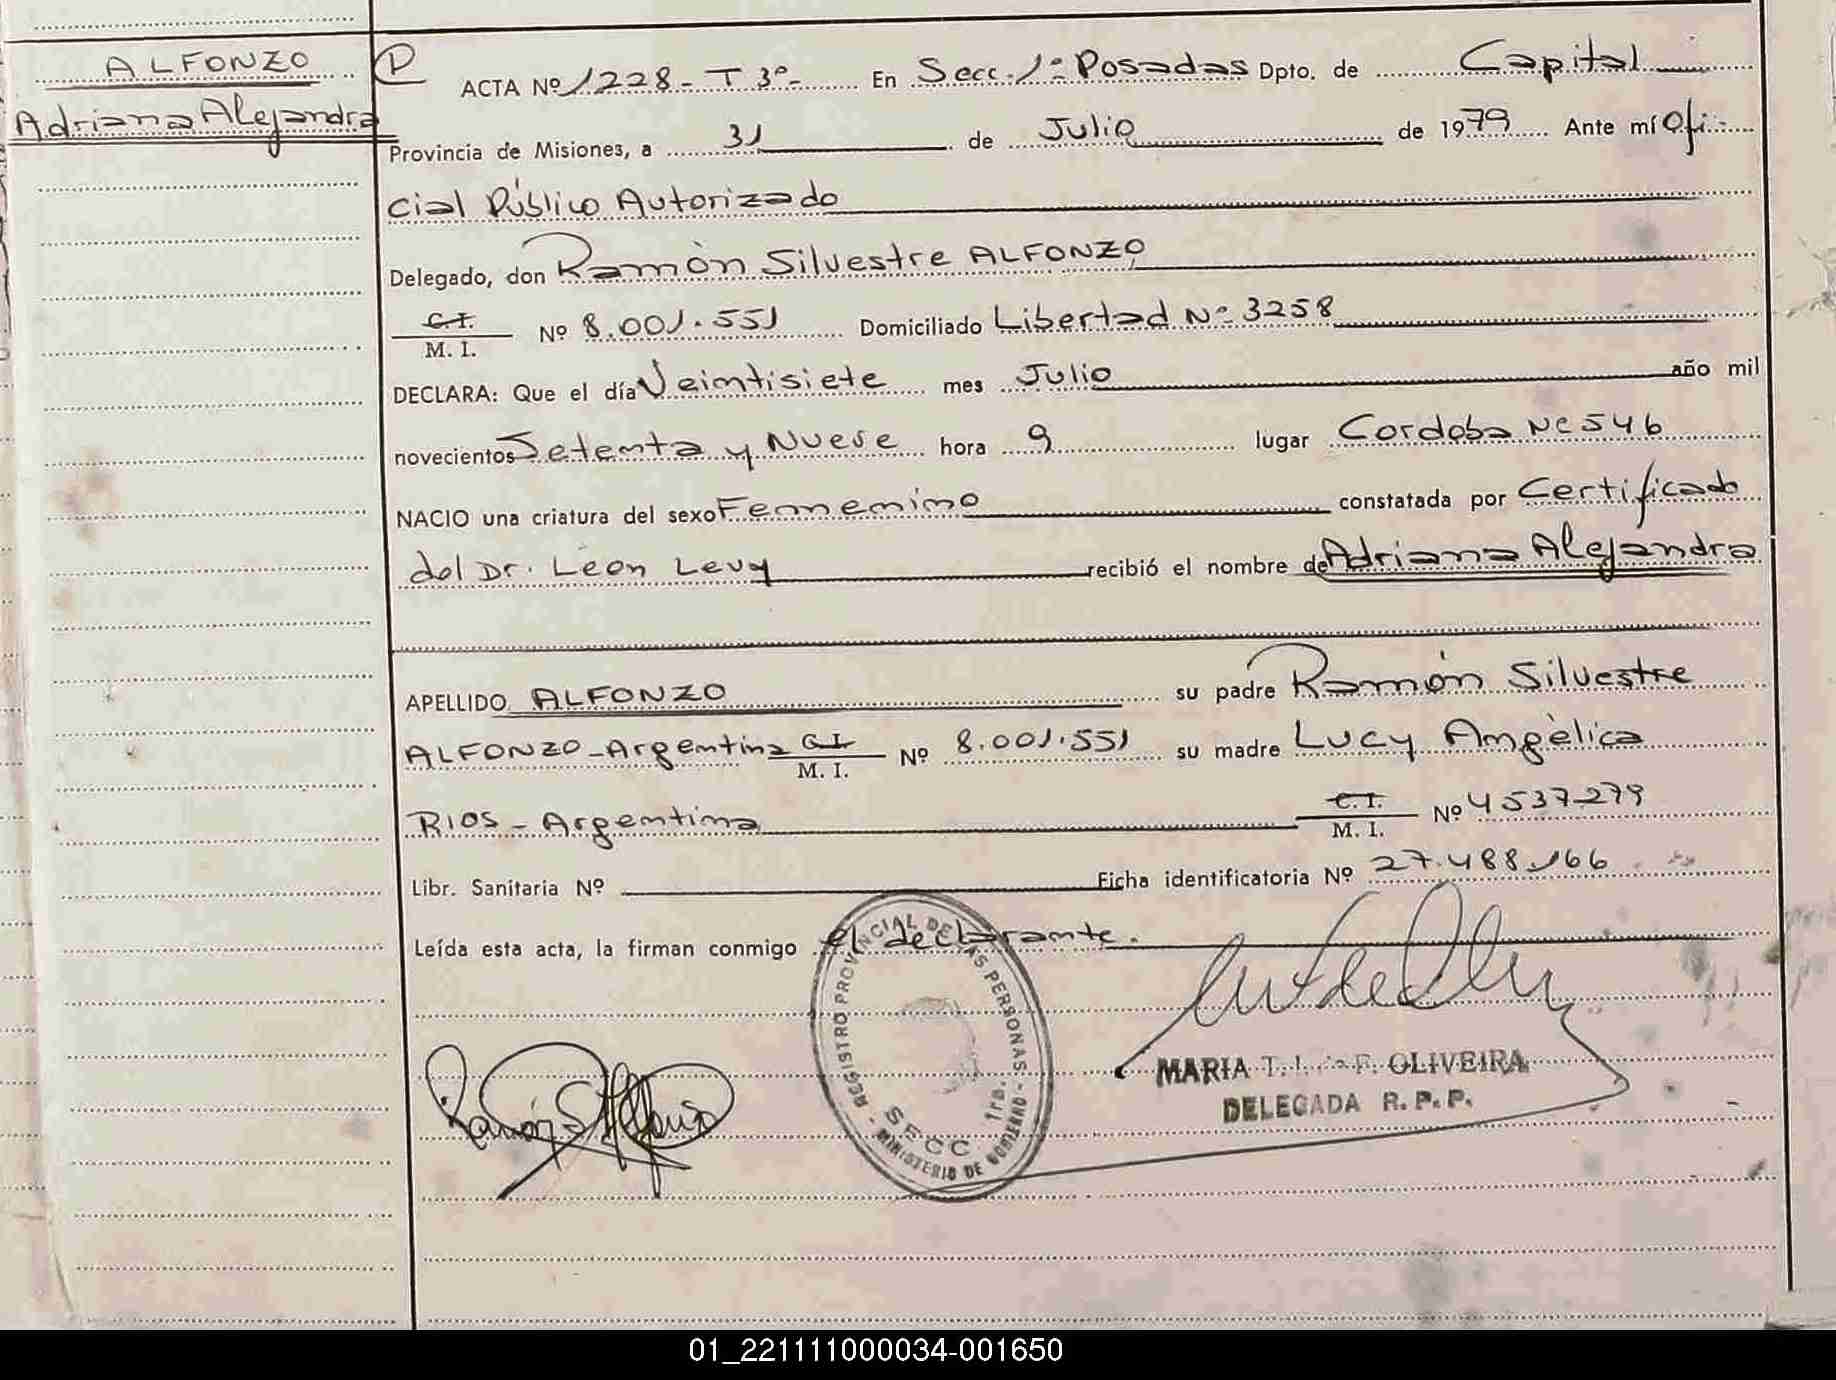 ALFONZO
Adriana Alejandra
D
ACTA Nº 1228 - T 3º - En Secc. 1º Posadas Dpto. de Capital
Provincia de Misiones, a 31 de Julio de 1979 Ante mí Ofi-
cial Público Autorizado
Delegado, don Ramón Silvestre ALFONZO
C.I.
M. I. Nº 8.001.551 Domiciliado Libertad Nº 3258
DECLARA: Que el día Veintisiete mes Julio año mil
novecientos Setenta y Nueve hora 9 lugar Cordoba Nº 546
NACIO una criatura del sexo Femenino constatada por Certificado
del Dr. León Levy recibió el nombre de Adriana Alejandra
APELLIDO ALFONZO su padre Ramón Silvestre
ALFONZO - Argentina C.I.
M. I. Nº 8.001.551 su madre Lucy Angèlica
RIOS - Argentina C.I.
M. I. Nº 4537279
Libr. Sanitaria Nº Ficha identificatoria Nº 27.488.166
Leída esta acta, la firman conmigo el declarante.
REGISTRO PROVINCIAL DE LAS PERSONAS - MINISTERIO DE GOBIERNO -
SECC. 1ra.
Ramón S Alfonzo
MARIA T. F. OLIVEIRA
DELEGADA R. P. P.
01_221111000034-001650